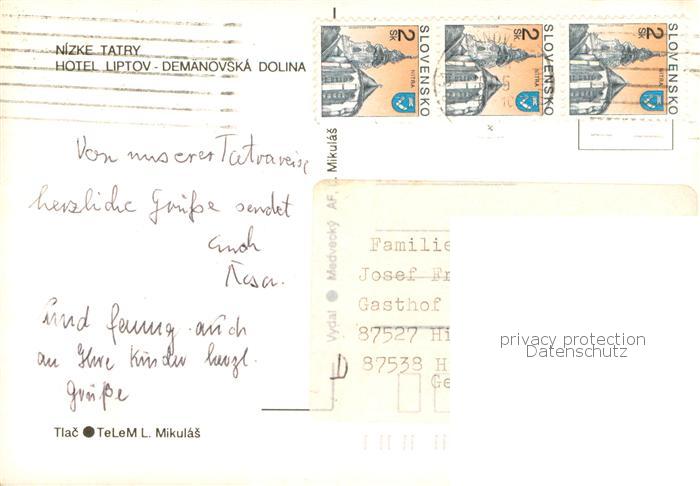 NÍZKE TATRY
HOTEL LIPTOV - DEMANOVSKÁ DOLINA
2 Sk
SLOVENSKO
NITRA
2 Sk
SLOVENSKO
NITRA
2 Sk
SLOVENSKO
NITRA
Von unserer Tatrareise
herzliche Grüße sendet
Euch
und
auch
an Ihre Kinder herzl.
Grüße
Vydal Medvecký AF, L. Mikuláš
Familie
Josef
Gasthof
87527
87538
D
privacy protection
Datenschutz
Tlač TeLeM L. Mikuláš